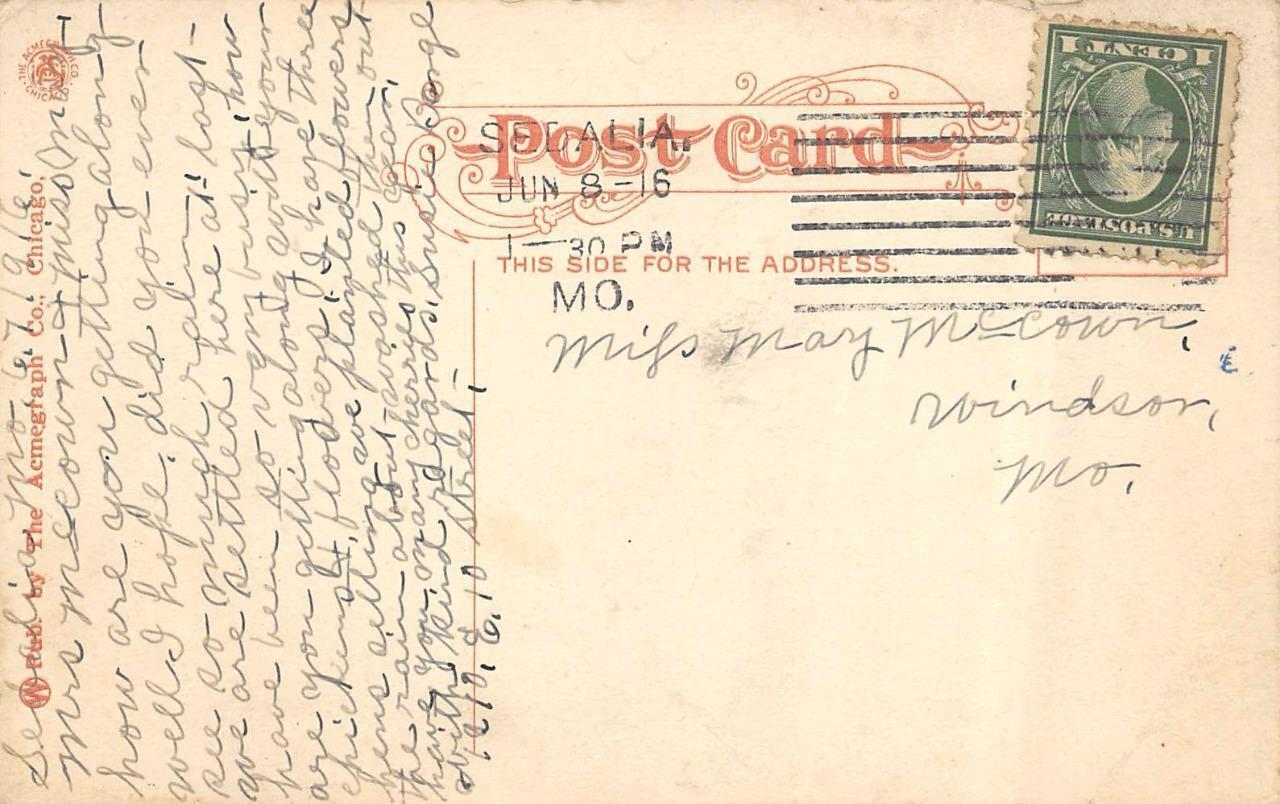 THE ACMEGRAPH CO.
CHICAGO
W Pub. by The Acmegraph Co., Chicago.
Post Card
THIS SIDE FOR THE ADDRESS.
SEDALIA.
JUN 8 -16
1 — 30 PM
MO.
U.S. POSTAGE
1 CENT 1
Miss May McCown,
Windsor,
Mo.
Sedalia Mo 6 7, 916,
Mrs McCown & Miss May
how are you getting along
well I hope, did you ever
see so much rain –
we are settled here at last –
have been so very busy, how
are you getting along with your
chickens & flowers, I have three
hens setting, ave planted flowers
the rain about washed them out
have you many cherries this year,
with kind regards, Susie
1210, E, 10 street –